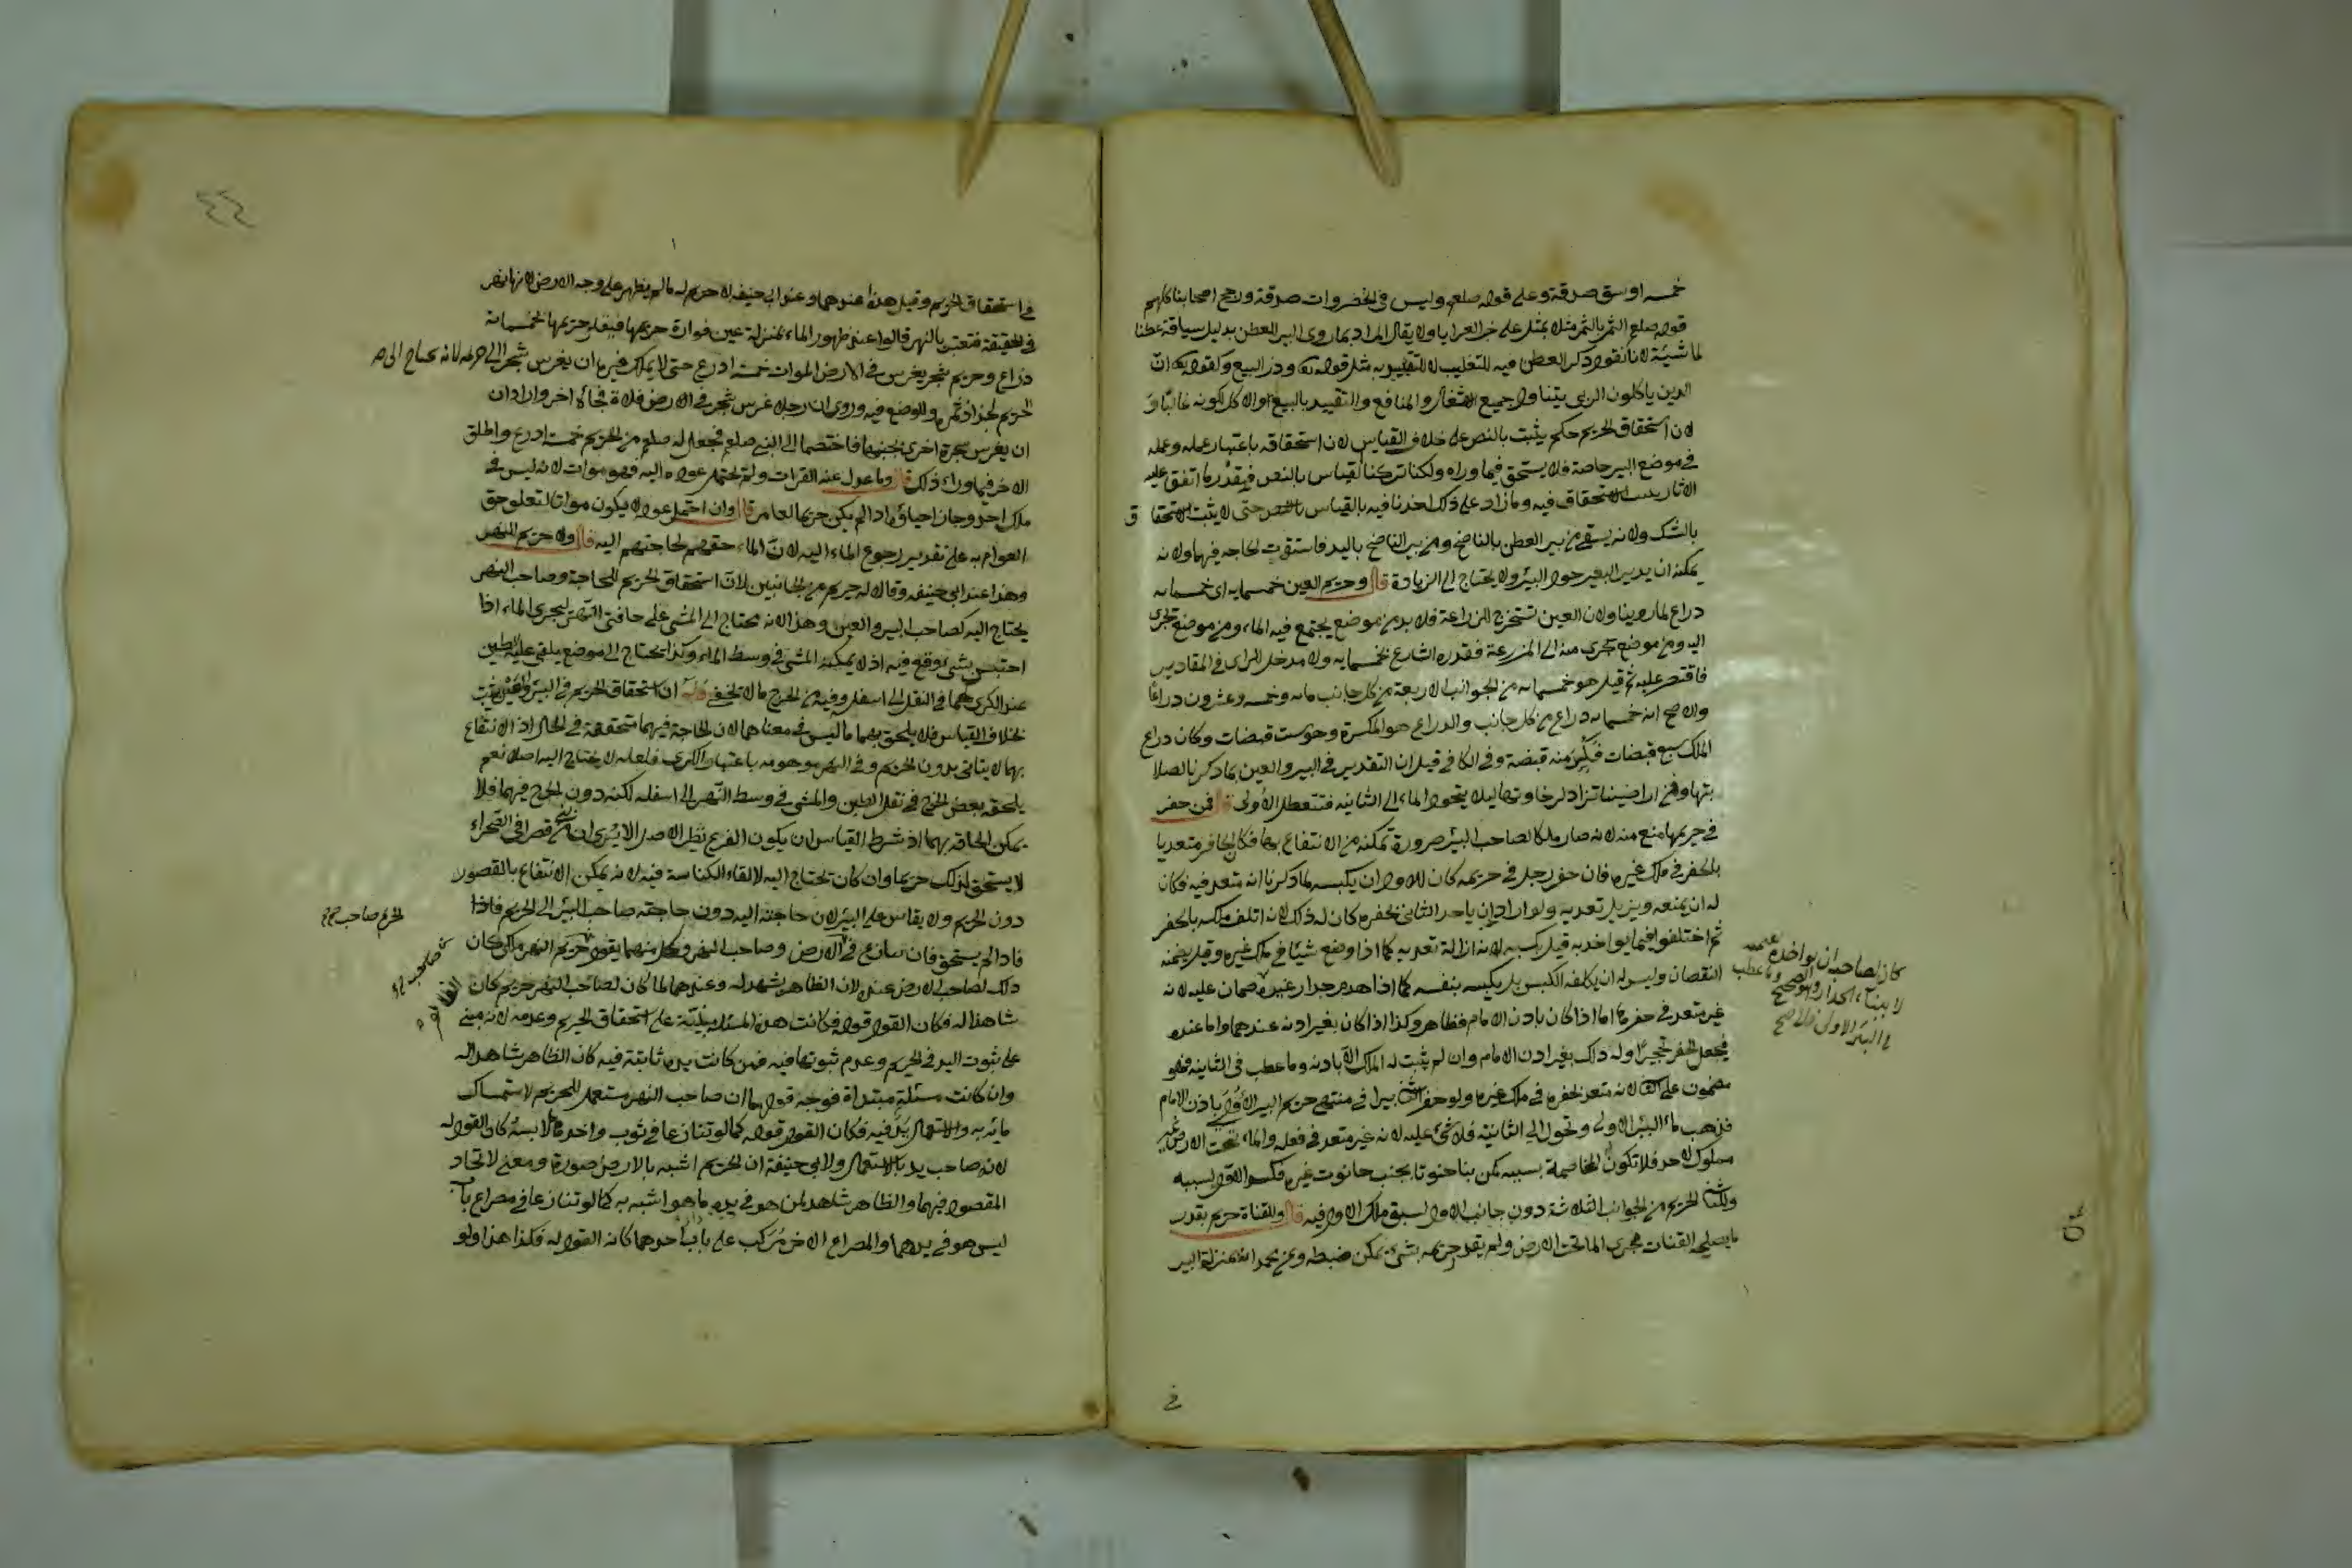 خمسه اوسق صدقة وعلى قوله صلعم وليس فى الخضروات صدقة ورجح اصحابنا كلهم
قوله صلع التمر بالتمر مثلا بمثل على خبر العرايا ولا يقال المراد بما روى البير للعطن بدليل سياقه عطنا
لماشيته لانا نقول ذكر العطن فيه للتغليب لا للتقييد مثل قوله تع وذر البيع وكقوله تع ان
الذين ياكلون الربى يتناول جميع والمنافع والتقييد بالبيع والاكل لكونه غالبا و
لان استحقاق الحريم حكم يثبت بالنص على خلاف القياس لان استحقاقه باعتبار عمله وعمله
فى موضع البير خاصة فلا يستحق فيما وراه ولكنا تركنا القياس بالنص فبقدر ما اتفق عليه
الاثار يثبت الاستحقاق فيه وما زاد على ذلك اخذنا فيه بالقياس حتى لا يثبت الاستحقاق
بالشك ولانه يستقى من بير العطن بالناضح ومن بير الناضح باليد فاستوت الحاجه فيهما ولانه
يمكنه ان يدير البعير حول البئر ولا يحتاج الى الزيادة قال وحريم العين خمسمايه اى خمسمايه
دراع لما روينا ولان العين تستخرج للزراعة فلا بد من موضع يجتمع فيه الماء ومن موضع تجرى
اليه ومن موضع يجرى منه الى المزرعة فقدره الشارع بخمسمايه ولا مدخل للراى فى المقادير
فاقتصر عليه ثم قيل هو خمسمايه من الجوانب الاربعة من كل جانب مايه وخمسه وعشرون دراعا
والاصح انه خمسمايه دراع من كل جانب والدراع هو المكسرة وهو ست قبضات وكان دراع
الملك سبع قبضات فكسر منه قبضة وفى الكافى قيل ان التقدير فى البير والعين بما ذكرنا لصلا
بتها وفى اراضينا تزاد لرخاوتها ليلا يتحول الماء الى الثانيه فتتعطل الاولى قال فمن حفر
فى حريمها منع منه لانه صار ملكا لصاحب البئر ضرورة تمكنه من الانتفاع بها فكان الحافر متعديا
بالحفر فى ملك غيره فان حفر رجل فى حريمه كان للاول ان يكبسه لما ذكرنا انه متعد فيه فكان
له ان يمنعه ويزيل تعديه ولو اراد ان ياخذ الثانى بحفره كان له ذلك لانه اتلف ملكه بالحفر
ثم اختلفوا فيما يواخذ به قيل يكبسه لانه ازالة تعديه كما اذا وضع شيئا فى ملك غيره وقيل يضمنه
النقصان وليس له ان يكلفه الكبس بل يكبسه بنفسه كما اذا هدم جدار غيره ضمان عليه لانه
غير متعد فى حفرها اما اذا كان باذن الامام فظاهر وكذا اذا كان بغير اذنه عندهما واما عنده
فيجعل الحفر تحجيرا وله ذلك بغير اذن الامام وان لم يثبت له الملك الا باذنه وما عطب فى الثانيه فهو
مضمون على لانه متعد بحفره فى ملك غيره ولو حفر بيرا فى منتهى حريم البير الاولى باذن الامام
فذهب ماء البئر الاولى وتحول الى الثانية فلا شئ عليه لانه غير متعد فى فعله والماء تحت الارض غير
مملوك لاحد فلا تكون المخاصمة بسببه كمن بنا حنوتا بجنب حانوت غيره فكسد الاول بسببه
الحريم من الجوانب الثلاثة دون جانب الاول لسبق ملك الاول فيه قال وللقناة حريم بقدر
ما يصلحه القنات مجرى الما تحت الارض ولم يقدر حريمه بشئ يمكن ضبطه وعن محمد انه بمنزلة البير
كان لصاحبه ان يواخذه بقيمته
لا ببناء الجدار وهو الصحيح وما عطب
البئر الاولى فلا
فى
فى استحقاق الحريم وقيل هذا عندهما وعند ابى حنيفه لا حريم له ما لم يظهر على وجه الارض لانها نهر
فى الحقيقة فتعتبر بالنهر قالوا عند ظهور الماء بمنزلة عين فوارة حريمها فيقدر حريمها بخمسمايه
ذراع وحريم شجر يغرس فى الارض الموات خمسة ادرع حتى لا يملك غيره ان يغرس شجرا الى حريمه لانه يحتاج الى
الحريم لجذاذ ثمره والوضع فيه وروى ان رجلا غرس شجر فى الارض فلاة فجاء اخر واراد ان
ان يغرس شجرة اخرى بجنبها فاختصما الى النبى صلعم فجعل له صلعم من الحريم خمسة ادرع واطلق
الاخر فيما وراء ذلك قال وما عدل عنه الفرات ولم يحتمل عوده اليه فهو موات لانه ليس فى
ملك احد وجاز احياؤه اذا لم يكن حريما لعامر قال وان احتمل عوده لا يكون مواتا لتعلق حق
العوام به على تقدير رجوع الماء اليه لان الماء حقهم لحاجتهم اليه قال ولا حريم للنهر
وهذا عند ابى حنيفه وقالا له حريم من الجانبين لان استحقاق الحريم للحاجة وصاحب النهر
يحتاج اليه كصاحب البير والعين وهذا لانه يحتاج الى المشى على حافتى النهر ليجرى الماء اذا
احتبس بشئ وقع فيه اذ لا يمكنه المشى فى وسط الماء وكذا يحتاج الى موضع يلقى عليه الطين
عند الكرى فى النقل الى اسفل وفيه من الحرج ما لا يخفى وله ان استحقاق الحريم فى البئر والعين يثبت
بخلاف القياس فلا يلحق بهما ما ليس فى معناهما لان الحاجة فيهما متحققة فى الحال اذ الانتفاع
بهما لا يتاتى بدون الحريم وفى النهر موهومه باعتبار الكرى فلعله لا يحتاج اليه اصلا نعم
يلحقه بعض الحرج فى نقل الطين والمشى فى وسط النهر الى اسفله لكنه دون الحرج فيهما فلا
يمكن الحاقه بهما اذ شرط القياس ان يكون الفرع نظير الاصل الا يرى ان من بنى قصرا فى الصحراء
لا يستحق لذلك حريما وان كان يحتاج اليه لالقاء الكناسة فيه لانه يمكن الانتفاع بالقصور
دون الحريم ولا يقاس على البئر لان حاجته اليه دون حاجته صاحب البئر الى الحريم فاذا
فاذا لم يستحق فان تنازع فى الارض وصاحب النهر وكل منهما يقول حريم النهر ملكى كان
ذلك لصاحب الارض عنده لان الظاهر يشهد له وعندهما لما كان لصاحب النهر حريم كان
شاهدا له فكان القول قوله فكانت هذه المسئلة مبنية على استحقاق الحريم وعدمه لانه مبنى
على ثبوت اليد فى الحريم وعدم ثبوتها فيه فمن كانت يده ثابتة فيه كان الظاهر شاهدا له
وان كانت مسئلة مبتداة فوجه قولهما ان صاحب النهر مستعمل للحريم لاستمساك
مائه به والاستعمال يد فيه فكان القول قوله كما لو تنازعا فى ثوب واحدهما لابسه كان القول له
لانه صاحب يد بالاستعمال ولابى حنيفة ان الحريم اشبه بالارض صورة ومعنى لاتحاد
المقصود فيهما والظاهر شاهد لمن هو فى يده ما هو اشبه به كما لو تنازعا فى مصراع باب
ليس هو فى يدهما والمصراع الاخر مركب على باب احدهما كانه القول له فكذا هذا ولو
الحريم صاحب